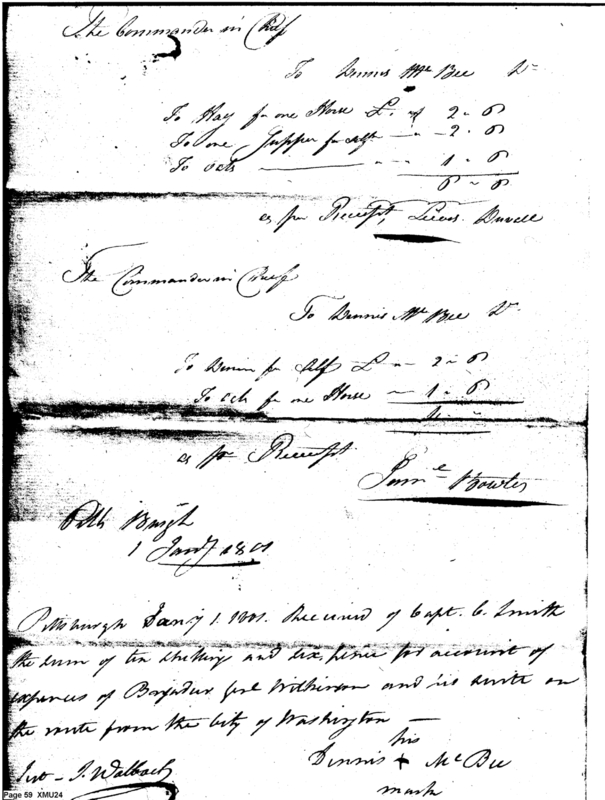 The Commander in Chief
To Dennis Mc Bee Dr
To Hay for one Horse £. " 2 " 6
To one Supper for Self — " — 2. 6
To Oats — " — 1 " 6
6 " 6
as per Receipt, Lieut. Duvall
The Commander in Chief
To Dennis Mc Bee Dr
To Dinner for Self £ " — 2 " 6
To oats for one Horse — 1 " 6
4 "
as per Receipt
Bowler
Pitts Burgh
1 Jany 1801
Pittsburgh Jany 1. 1801. Received of Capt. C. Smith
the sum of ten shilling and six pence for account of
expences of Brigadier Genl Wilkinson and his suite on
the route from the City of Washington —
his
Dennis + Mc Bee
mark
Test – J. Walbach
Page 59 XMU24